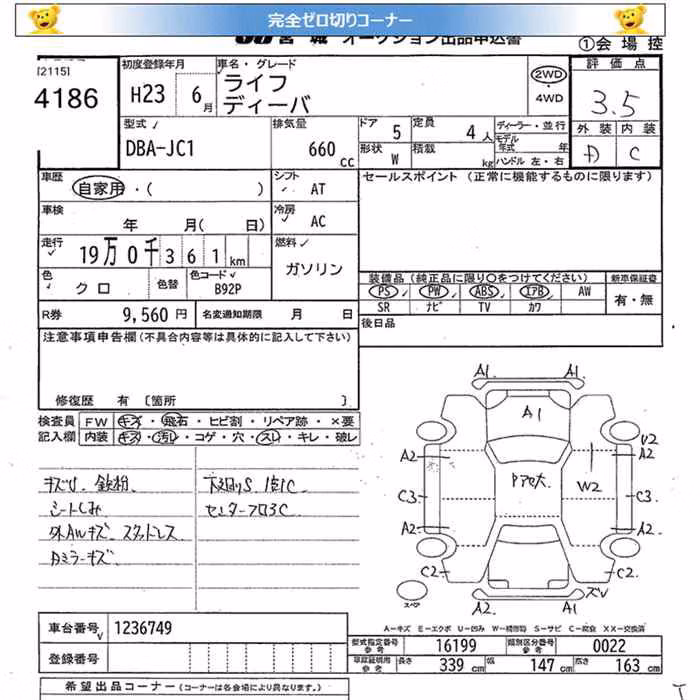 完全ゼロ切りコーナー
JU 宮城 オークション出品申込書
①会場控
[2115]
4186
初度登録年月
H23 6月
車名・グレード
ライフ
ディーバ
2WD
・
4WD
評価点
3.5
外装 内装
D C
型式
DBA-JC1
排気量
660 cc
ドア 5
定員 4人
形状 W
積載 kg
ディーラー・並行
モデル年式 年
ハンドル 左・右
車歴
自家用・( )
シフト
AT
セールスポイント (正常に機能するものに限ります)
車検
年 月( 日)
冷房
AC
走行
19万0千361km
燃料
ガソリン
色
クロ
色替
色コード
B92P
装備品 (純正品に限り○をつけてください)
新車保証書
PS PW ABS エアB AW
SR ナビ TV カワ
有・無
R券 9,560円
名変通知期限 月 日
後日品
注意事項申告欄 (不具合内容等は具体的に記入して下さい)
修復歴 有 [箇所 ]
検査員
記入欄
FW キズ・飛石・ヒビ割・リペア跡・×要
内装 キズ・汚レ・コゲ・穴・スレ・キレ・破レ
キズU. 鉄粉
シートしみ
外AWキズ スタッドレス
下廻りS
センターフロ3C
A1 A1
A1
U2
A2 A2
W2
C3 C3
A2 A2
C2 C2
A2 A1
スペア
A-キズ E-エクボ U-凹み W-補修跡 S-サビ C-腐食 XX-交換済
車台番号
1236749
登録番号
型式指定番号
参考
16199
類別区分番号
参考
0022
車庫証明用
参考
長さ 339 cm
幅 147 cm
高さ 163 cm
希望出品コーナー (コーナーは各会場により異なります。)